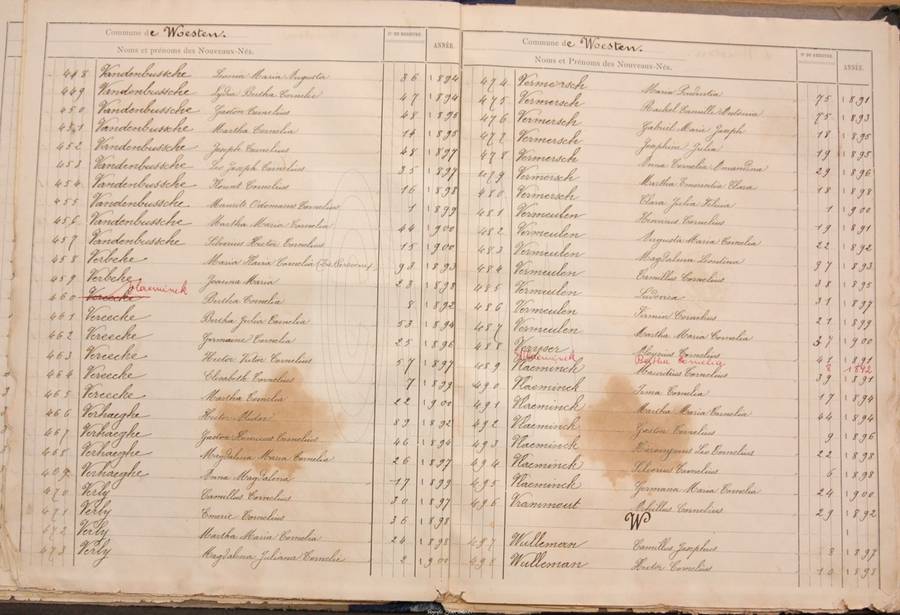 Commune de Woesten.
Noms et prénoms des Nouveaux-Nés.
N° DE REGISTRE.
ANNÉE.
448 Vandenbussche Maria Augusta 36 1894
449 Vandenbussche Lydia Bertha Cornelie 47 1894
450 Vandenbussche Gaston Cornelius 48 1895
451 Vandenbussche Martha Cornelia 14 1895
452 Vandenbussche Joseph Cornelius 48 1897
453 Vandenbussche Leo Joseph Cornelius 35 1897
454 Vandenbussche Cornelius 16 1898
455 Vandenbussche Odomarus Cornelius 1 1899
456 Vandenbussche Martha Maria Cornelia 44 1900
457 Vandenbussche Silverius Hector Cornelius 15 1900
458 Verbeke Maria Cornelia 93 1893
459 Verbeke Joanna Maria 23 1898
Vlaeminck
460 Vereecke Bertha Cornelia 8 1892
461 Vereecke Bertha Julia Cornelia 53 1894
462 Vereecke Germaine Cornelia 25 1896
463 Vereecke Hector Victor Cornelius 57 1897
464 Vereecke Elisabeth Cornelius 7 1899
465 Vereecke Martha Cornelia 22 1900
466 Verhaeghe Hector 89 1892
467 Verhaeghe Gaston Henricus Cornelius 46 1894
468 Verhaeghe Magdalena Maria Cornelia 26 1897
469 Verhaeghe Anna Magdalena 17 1899
470 Verly Camillus Cornelius 30 1897
471 Verly Emeric Cornelius 36 1898
472 Verly Martha Maria Cornelia 24 1898
473 Verly Magdalena Juliana Cornelie 2 1900
Commune de Woesten.
Noms et Prénoms des Nouveaux-Nés.
N° DE REGISTRE.
ANNÉE.
474 Vermersch Maria Prudentia 75 1891
475 Vermersch Rachel Camille Antonia 75 1893
476 Vermersch Gabriel Marie Joseph 18 1895
477 Vermersch Josephine Julia 19 1895
478 Vermersch Anna Cornelia Amandina 29 1896
479 Vermersch Martha Emerentia Clara 18 1898
480 Vermersch Clara Julia 1 1900
481 Vermeulen Henricus Cornelius 19 1891
482 Vermeulen Augusta Maria Cornelia 22 1892
483 Vermeulen Magdalena 37 1893
484 Vermeulen Camillus Cornelius 38 1895
485 Vermeulen Ludovica 31 1897
486 Vermeulen Firmin Cornelius 21 1899
487 Vermeulen Martha Maria Cornelia 37 1900
488 Aloysius Cornelius 41 1891
Vlaeminck Bertha Cornelia 8 1892
489 Vlaeminck Mauritius Cornelius 39 1891
490 Vlaeminck Irma Cornelia 17 1894
491 Vlaeminck Martha Maria Cornelia 44 1894
492 Vlaeminck Gaston Cornelius 9 1896
493 Vlaeminck Hieronymus Leo Cornelius 22 1898
494 Vlaeminck Silverius Cornelius 6 1898
495 Vlaeminck Germana Maria Cornelia 24 1900
496 Vrammout Achillus Cornelius 29 1892
W
497 Wulleman Camillus Josephus 8 1897
498 Wulleman Hector Cornelius 10 1898